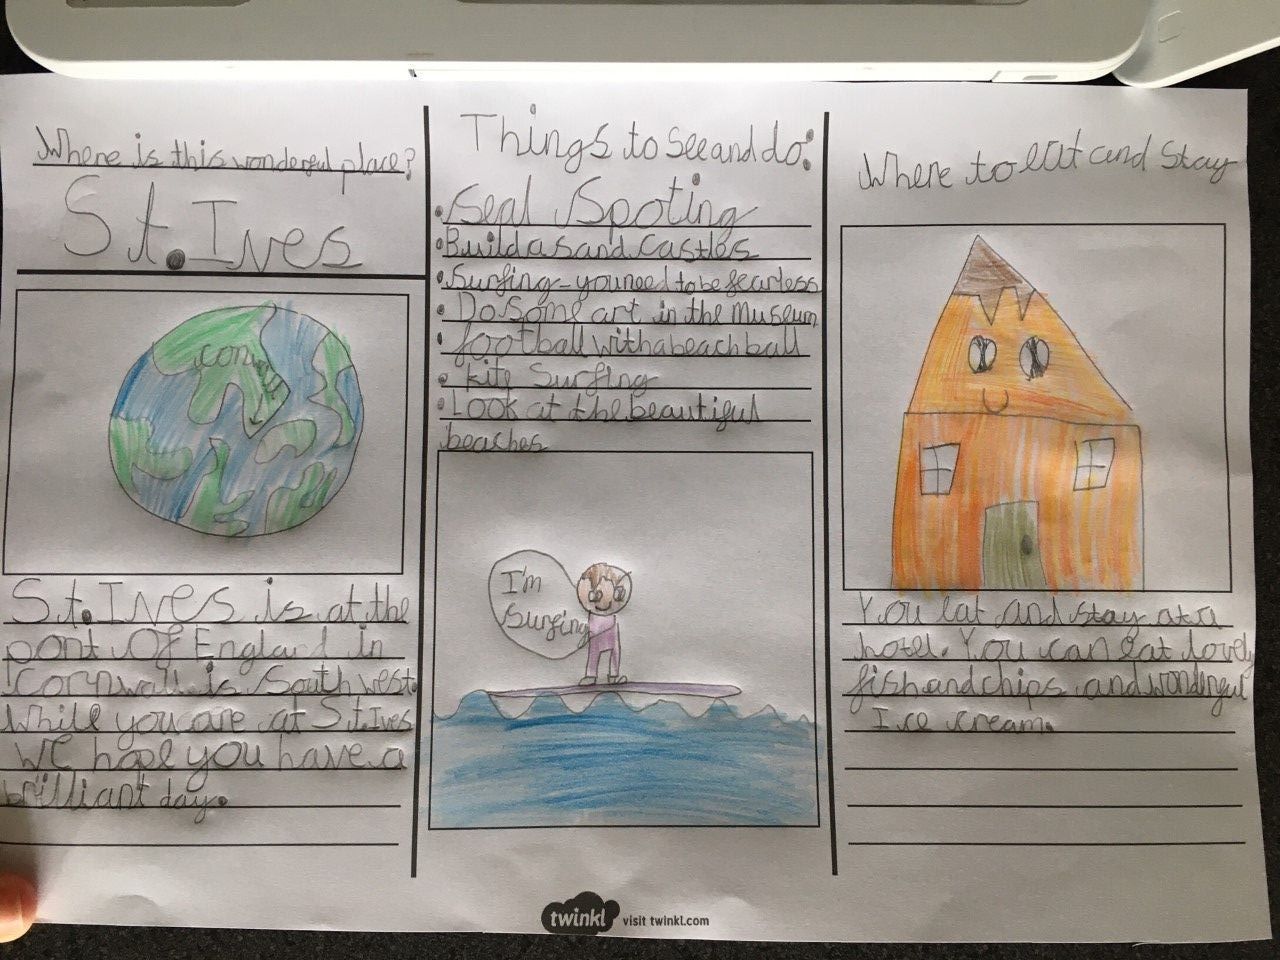 Where is this wonderful place?
St. Ives
Cornwall
St. Ives is at the
pont of England in
Cornwall is South west.
While you are at St. Ives
We hope you have a
brilliant day.
Things to see and do:
• Seal Spoting
• Build a sand Castles
• Surfing - you need to be fearless
• Do Some art in the museum
• football with a beach ball
• kite Surfing
• Look at the beautiful
beaches
I'm
Surfing
Where to eat and Stay
You eat and stay at a
hotel. You can eat lovely
fish and chips and wonderful
Ice cream.
twinkl visit twinkl.com